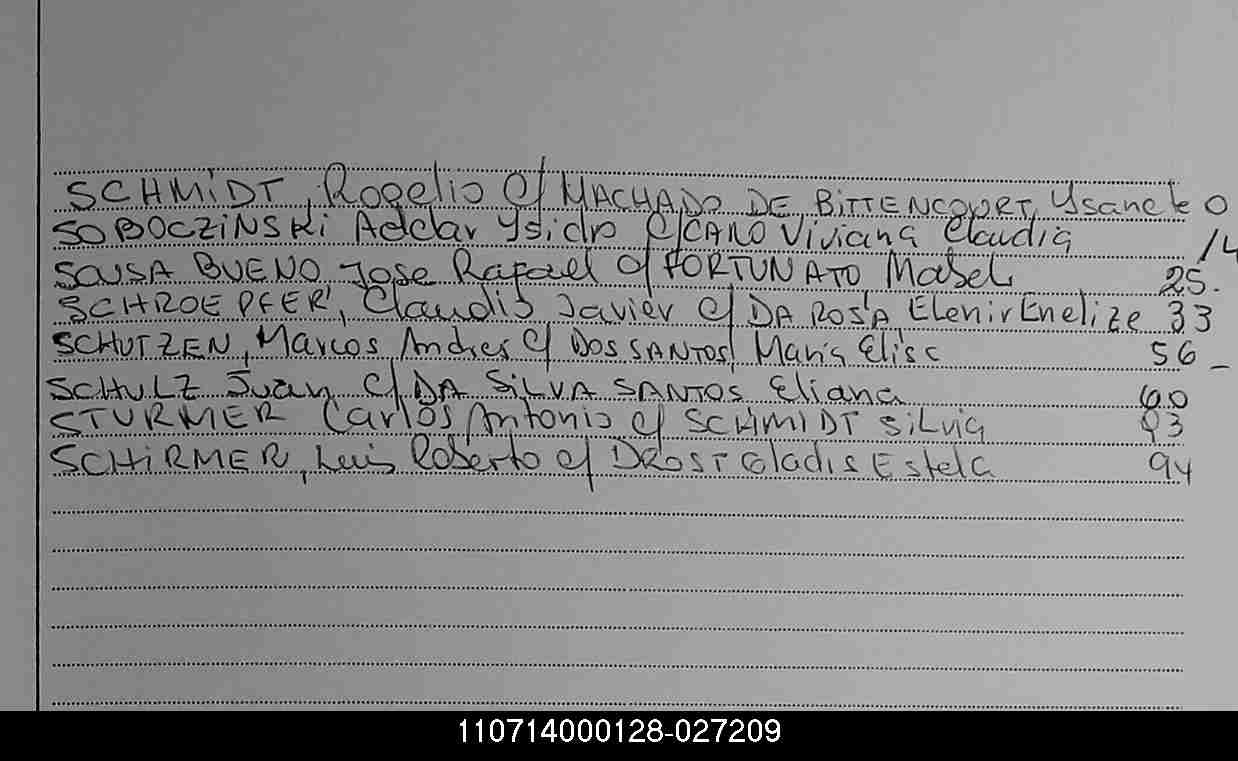 SCHMIDT, Rogelio c/ MACHADO DE BITTENCOURT, Ysanete 0
SOBOCZINSKI Ysidro c/ CANO Viviana Claudia 14
SOUSA BUENO, Jose Rafael c/ FORTUNATO, Mabel 25.
SCHROEPFER, Claudio Javier c/ DA ROSA, Elenir Enelize 33
SCHUTZEN, Marcos Andres c/ DOS SANTOS, Maria 56
SCHULZ Juan c/ DA SILVA SANTOS Eliana
STURMER Carlos Antonio c/ SCHMIDT Silvia
SCHIRMER, Luis Roberto c/ DROST Gladis Estela 94
110714000128-027209